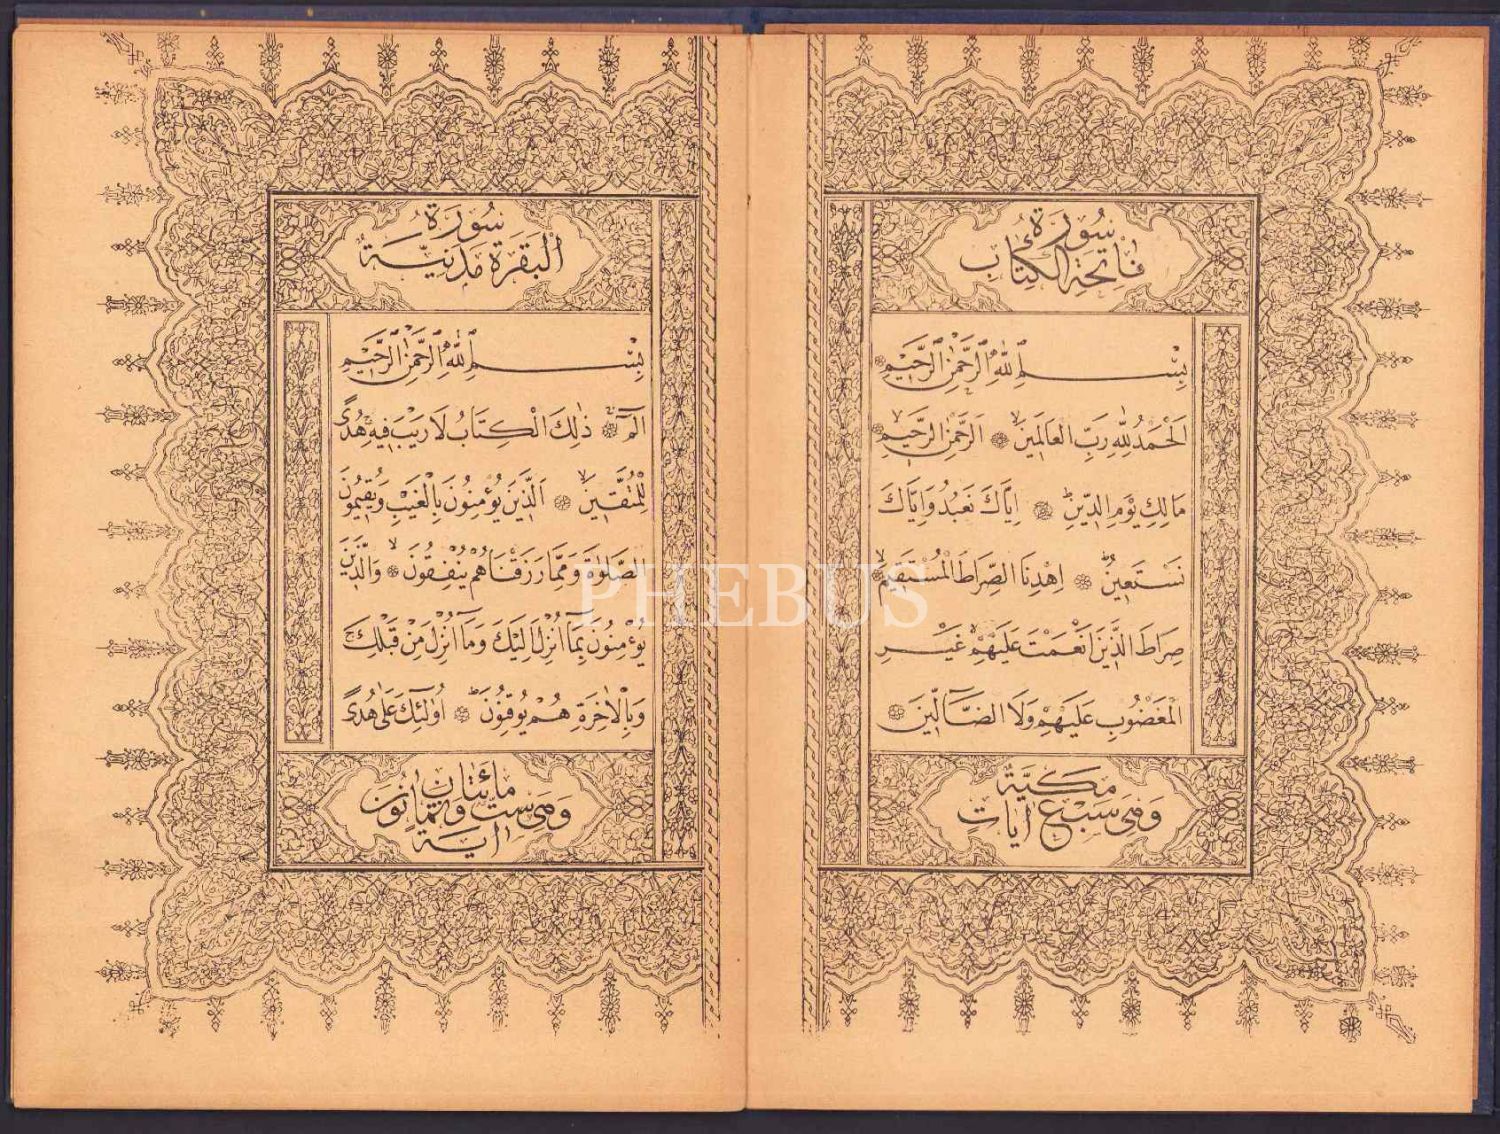 سُورَةُ
فَاتِحَةِ الْكِتَابِ
بِسْمِ اللّٰهِ الرَّحْمٰنِ الرَّحِيمِ
اَلْحَمْدُ لِلّٰهِ رَبِّ الْعَالَمِينَۙ اَلرَّحْمٰنِ الرَّحِيمِۙ
مَالِكِ يَوْمِ الدِّينِۜ اِيَّاكَ نَعْبُدُ وَاِيَّاكَ
نَسْتَعِينُۜ اِهْدِنَا الصِّرَاطَ الْمُسْتَقِيمَۙ
صِرَاطَ الَّذِينَ اَنْعَمْتَ عَلَيْهِمْۙ غَيْرِ
الْمَغْضُوبِ عَلَيْهِمْ وَلَا الضَّٓالِّينَ
مَكِّيَّةٌ
وَهِيَ سَبْعُ اٰيَاتٍ
سُورَةُ
الْبَقَرَةِ مَدَنِيَّةٌ
بِسْمِ اللّٰهِ الرَّحْمٰنِ الرَّحِيمِ
الٓمٓۚ ذٰلِكَ الْكِتَابُ لَا رَيْبَۚ فِيهِۚ هُدًى
لِلْمُتَّقِينَۙ اَلَّذِينَ يُؤْمِنُونَ بِالْغَيْبِ وَيُقِيمُونَ
الصَّلٰوةَ وَمِمَّا رَزَقْنَاهُمْ يُنْفِقُونَۙ وَالَّذِينَ
يُؤْمِنُونَ بِمَٓا اُنْزِلَ اِلَيْكَ وَمَٓا اُنْزِلَ مِنْ قَبْلِكَۚ
وَبِالْاٰخِرَةِ هُمْ يُوقِنُونَۜ اُو۬لٰٓئِكَ عَلٰى هُدًى
مِائَتَانِ
وَهِيَ سِتٌّ وَثَمَانُونَ
اٰيَة
PHEBUS